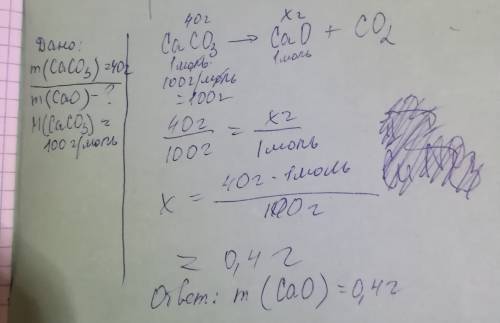 Дано:
m(CaCO₃)=40г
m(CaO)-?
M(CaCO₃)=
100г/моль
40г xг
CaCO₃ → CaO + CO₂
1моль· 1моль
100г/моль
=100г
40г/100г = xг/1моль
x = 40г·1моль/100г
= 0,4г
Ответ: m(CaO)=0,4г